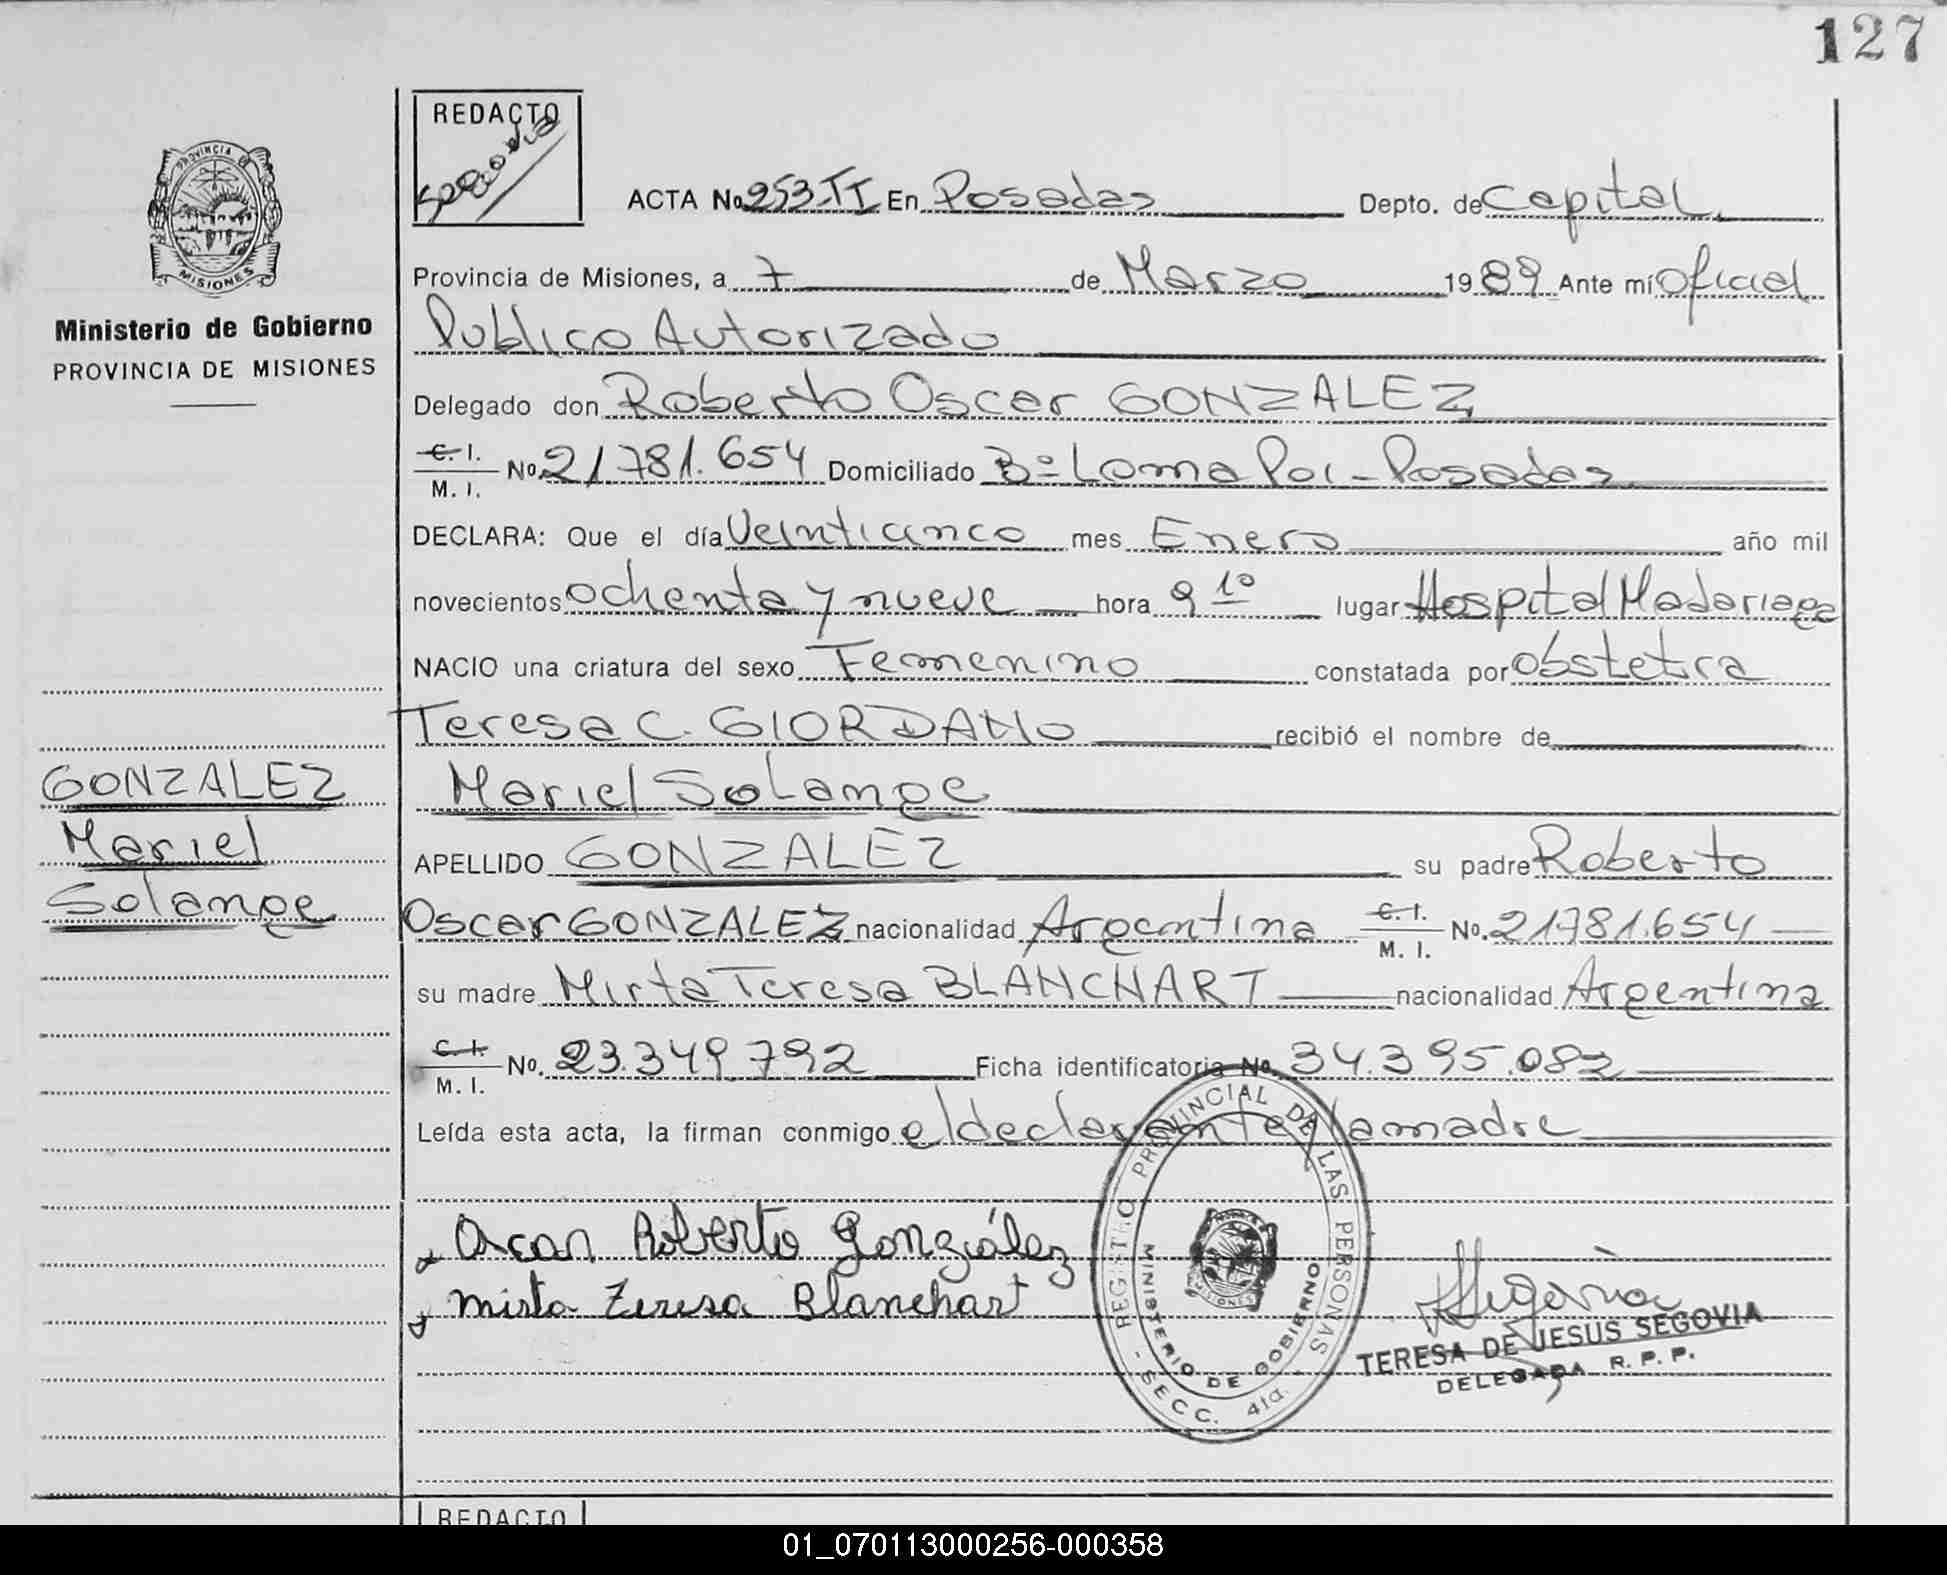 127
REDACTO
Segovia
ACTA No. 253-TI En Posadas Depto. de Capital
Provincia de Misiones, a 7 de Marzo 1989 Ante mí Oficial
Publico Autorizado
Delegado don Roberto Oscar GONZALEZ
C. I.
M. I. No. 21781.654 Domiciliado Bº Loma Poi - Posadas
DECLARA: Que el día Veinticinco mes Enero año mil
novecientos ochenta y nueve hora 9 10 lugar Hospital Madariaga
NACIO una criatura del sexo Femenino constatada por obstetra
Teresa C. GIORDANO recibió el nombre de
Mariel Solange
APELLIDO GONZALEZ su padre Roberto
Oscar GONZALEZ nacionalidad Argentina C. I. M. I. No. 21781.654
su madre Mirta Teresa BLANCHART nacionalidad Argentina
C. I.
M. I. No. 23.349.792 Ficha identificatoria No. 34.395.082
Leída esta acta, la firman conmigo el declarante y la madre
Oscar Roberto González
Mirta Teresa Blanchart
PROVINCIA DE
MISIONES
Ministerio de Gobierno
PROVINCIA DE MISIONES
GONZALEZ
Mariel
Solange
REGISTRO PROVINCIAL DE LAS PERSONAS
- SECC. 4ta. -
MINISTERIO DE GOBIERNO
MISIONES
Segovia
TERESA DE JESUS SEGOVIA
DELEGADA R. P. P.
REDACTO
01_070113000256-000358